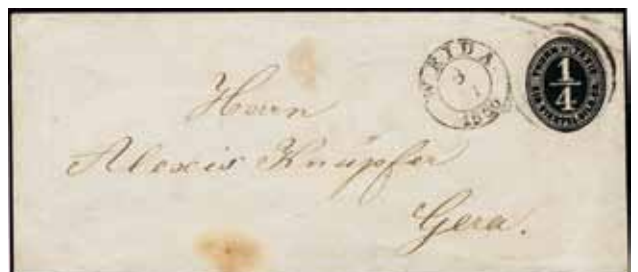 WEIDA
3
1
1/4
Herrn
Alexis Knüpfer
Gera.